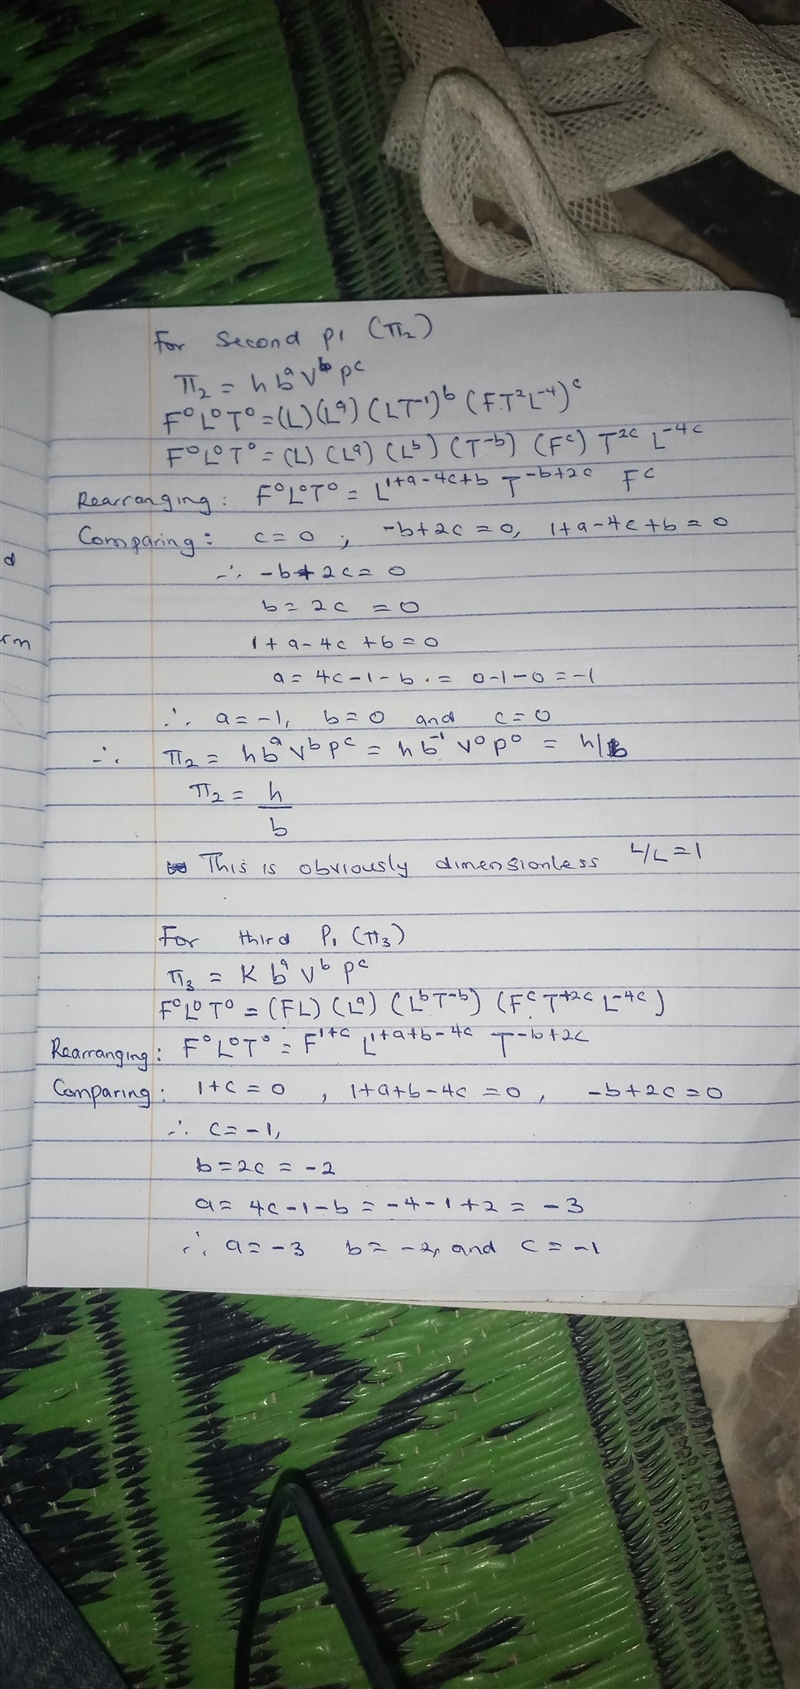 For Second Pi (π₂)
π₂ = h bᵃ Vᵇ ρᶜ
F⁰L⁰T⁰ = (L)(Lᵃ)(LT⁻¹)ᵇ (F.T²L⁻⁴)ᶜ
F⁰L⁰T⁰ = (L) (Lᵃ) (Lᵇ) (T⁻ᵇ) (Fᶜ) T²ᶜ L⁻⁴ᶜ
Rearranging: F⁰L⁰T⁰ = L¹⁺ᵃ⁻⁴ᶜ⁺ᵇ T⁻ᵇ⁺²ᶜ Fᶜ
Comparing: c = 0 ; -b+2c = 0, 1+a-4c+b = 0
∴ -b+2c = 0
b = 2c = 0
1+a-4c+b = 0
a = 4c-1-b. = 0-1-0 = -1
∴ a = -1, b = 0 and c = 0
∴ π₂ = h bᵃ Vᵇ ρᶜ = h b⁻¹ V⁰ ρ⁰ = h/b
π₂ = h
b
This is obviously dimensionless L/L = 1
For third Pi (π₃)
π₃ = K bᵃ Vᵇ ρᶜ
F⁰L⁰T⁰ = (FL) (Lᵃ) (LᵇT⁻ᵇ) (Fᶜ T⁺²ᶜ L⁻⁴ᶜ)
Rearranging: F⁰L⁰T⁰ = F¹⁺ᶜ L¹⁺ᵃ⁺ᵇ⁻⁴ᶜ T⁻ᵇ⁺²ᶜ
Comparing: 1+c = 0 , 1+a+b-4c = 0, -b+2c = 0
∴ c = -1,
b = 2c = -2
a = 4c-1-b = -4-1+2 = -3
∴ a = -3 b = -2, and c = -1